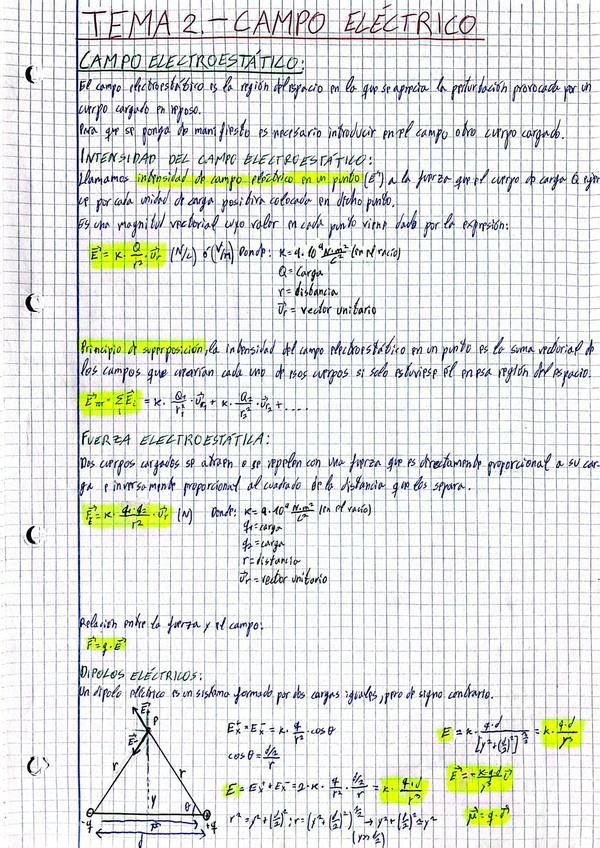 TEMA 2.- CAMPO ELÉCTRICO
CAMPO ELECTROESTÁTICO:
El campo electroestático es la región del espacio en la que se aprecia la perturbación provocada por un
cuerpo cargado en reposo.
Para que se ponga de manifiesto es necesario introducir en el campo otro cuerpo cargado.
INTENSIDAD DEL CAMPO ELECTROESTÁTICO:
Llamamos intensidad de campo eléctrico en un punto (E⃗) a la fuerza que el cuerpo de carga Q ejer
ce por cada unidad de carga positiva colocada en dicho punto.
Es una magnitud vectorial cuyo valor en cada punto viene dado por la expresión:
E⃗ = K · Q/r² · u⃗r (N/C) ó (V/m) Donde: K = 9·10⁹ N·m²/C² (en el vacío)
Q = Carga
r = distancia
u⃗r = vector unitario
Principio de superposición, la intensidad del campo electroestático en un punto es la suma vectorial de
los campos que crearían cada uno de esos cuerpos si solo estuviese él en esa región del espacio.
E⃗TOT = Σi E⃗i = K · Q1/r1² · u⃗r1 + K · Q2/r2² · u⃗r2 + ....
FUERZA ELECTROESTÁTICA:
Dos cuerpos cargados se atraen o se repelen con una fuerza que es directamente proporcional a su car-
ga e inversamente proporcional al cuadrado de la distancia que los separa.
F⃗E = K · q1·q2/r² · u⃗r (N) Donde: K = 9·10⁹ N·m²/C² (en el vacío)
q1 = carga
q2 = carga
r = distancia
u⃗r = vector unitario
Relación entre la fuerza y el campo:
F⃗ = q · E⃗
DIPOLOS ELÉCTRICOS:
Un dipolo eléctrico es un sistema formado por dos cargas iguales, pero de signo contrario.
P
r r
y θ
-q +q
d
Ex⁺ = Ex⁻ = K · q/r² · cos θ
cos θ = (d/2)/r
E = Ex⁺ + Ex⁻ = 2·K · q/r² · (d/2)/r = K · q·d/r³
r² = y² + (d/2)²; r = (y² + (d/2)²)^1/2 → y² + (d/2)² ≈ y²
(y≫d/2)
E = K · q·d/[y² + (d/2)²]^3/2 = K · q·d/y³
μ⃗ = q · d⃗